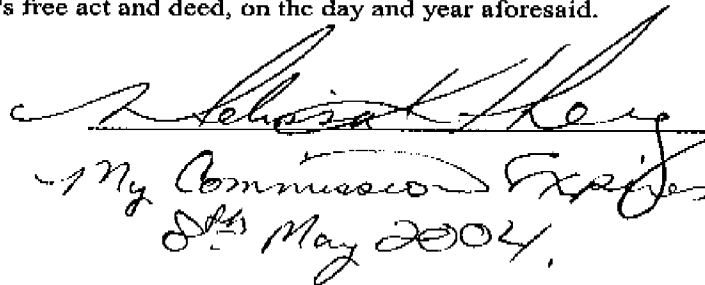 's free act and deed, on the day and year aforesaid.
Melissa K
My Commission Expires
8th May 2004.